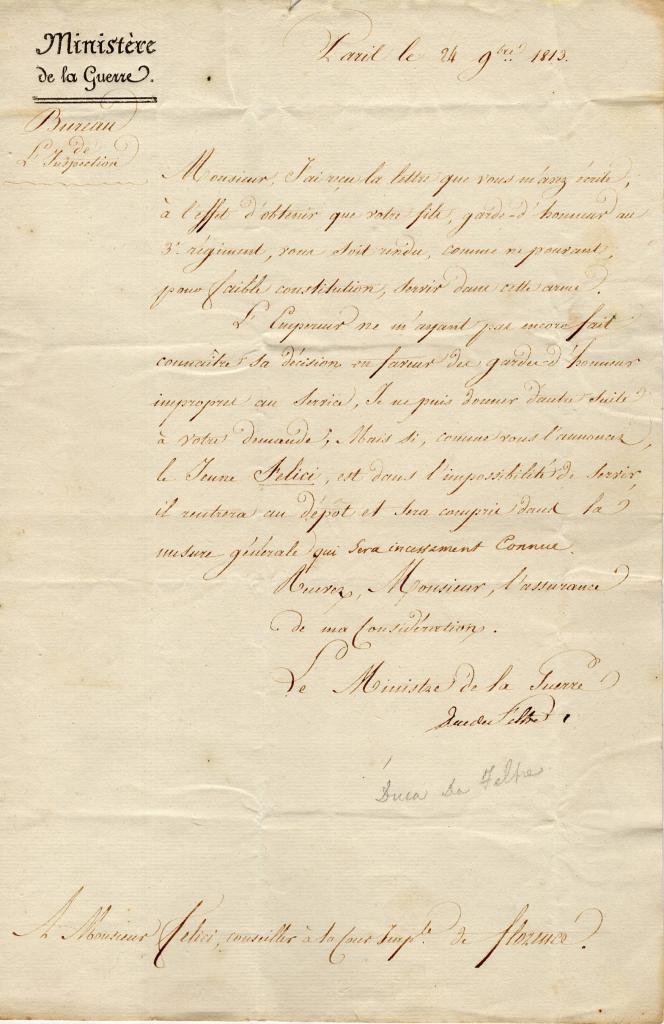 Ministère
de la Guerre.
Paris le 24 9bre 1813.
Bureau
de
L'Inspection
Monsieur, J'ai reçu la lettre que vous m'avez écrite,
à l'effet d'obtenir que votre fils, garde-d'honneur au
3e régiment, vous soit rendu, comme ne pouvant,
pour faible constitution, servir dans cette arme.
L'Empereur ne m'ayant pas encore fait
connaître sa décision en faveur des gardes-d'honneur
impropres au service, Je ne puis donner d'autre suite
à votre demande; Mais si, comme vous l'annoncez,
le Jeune Felici, est dans l'impossibilité de servir
il rentrera au dépôt et sera compris dans la
mesure générale qui sera incessamment connue.
Recevez, Monsieur, l'assurance
de ma Considération.
Le Ministre de la Guerre
Duc de Feltre
Duca Da Feltre
A Monsieur Felici, conseiller à la Cour Imple de florence.